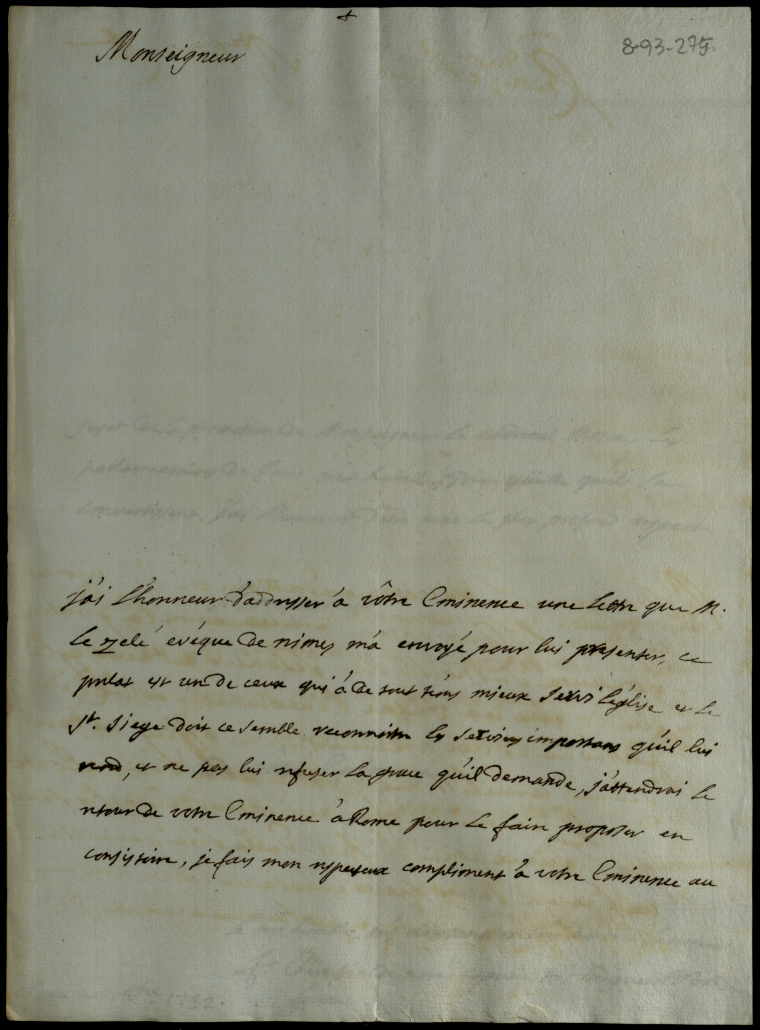 8-93-275.
Monseigneur
j'ai l'honneur d'addresser à vôtre Eminence une lettre que M.
le zelé evéque de nimes m'a envoyé pour lui presenter, ce
prelat est un de ceux qui à de tout tems mieux servi l'eglise et le
St. siege doit ce semble reconnoitre les services importans qu'il lui
rend, et ne pas lui refuser la grace qu'il demande, j'attendrai le
retour de votre Eminence à Rome pour le faire proposer en
consistoire, je fais mon respectueux compliment à votre Eminence au